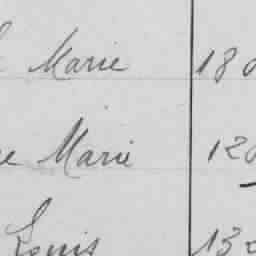 Marie 180
e Marie 120
Louis 13